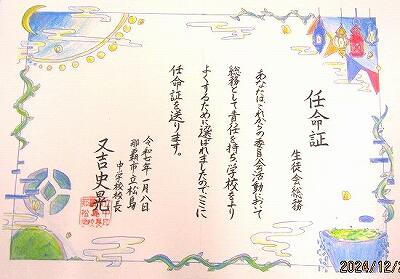 任命証
生徒会総務
あなたは、これからの委員会活動において
総務として責任を持ち、学校をより
よくするために選ばれましたのでここに
任命証を送ります。
令和七年一月八日
那覇市立松島
中学校校長
又吉史晃
2024/12/2